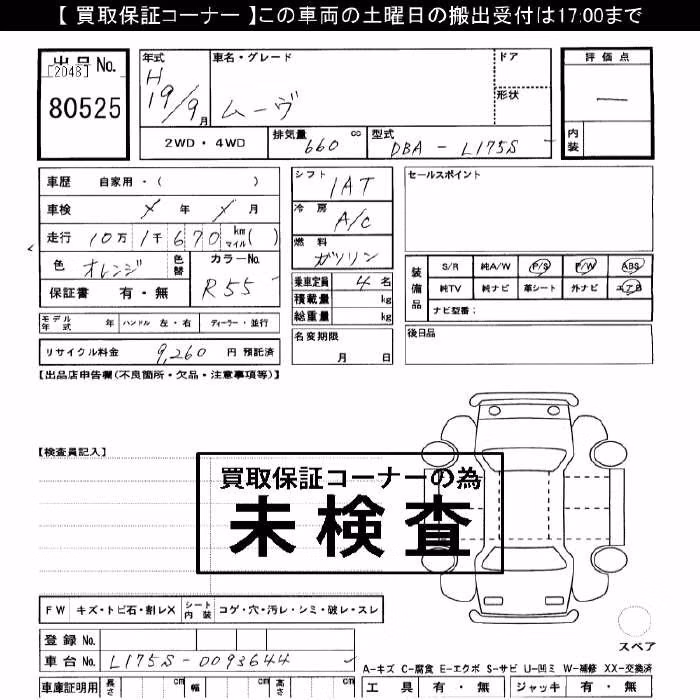 【 買取保証コーナー 】この車両の土曜日の搬出受付は17:00まで
出品 No.
[2048]
80525
年式
H
19/9月
車名・グレード
ムーヴ
ドア
形状
評価点
―
内装
2WD ・ 4WD
排気量 660 cc
型式 DBA - L175S
車歴 自家用・( )
車検 メ 年 メ 月
走行 10万 1千 670 km マイル ( )
色 オレンジ
色替
カラーNo.
R55
保証書 有・無
シフト 1AT
冷房 A/C
燃料 ガソリン
乗車定員 4 名
積載量 kg
総重量 kg
セールスポイント
装備品
S/R 純A/W P/S P/W ABS
純TV 純ナビ 革シート 外ナビ エアB
ナビ型番:
モデル年式 年 ハンドル 左・右 ディーラー・並行
名変期限
月 日
後日品
リサイクル料金 9,260 円 預託済
【出品店申告欄(不良箇所・欠品・注意事項等)】
【検査員記入】
買取保証コーナーの為
未検査
FW キズ・トビ石・割レX シート内装 コゲ・穴・汚レ・シミ・破レ・スレ
スペア
登録 No.
車台 No. L175S-0093644
A-キズ C-腐食 E-エクボ S-サビ U-凹ミ W-補修 XX-交換済
車庫証明用 長さ cm 幅 cm 高さ cm
工具 有・無 ジャッキ 有・無